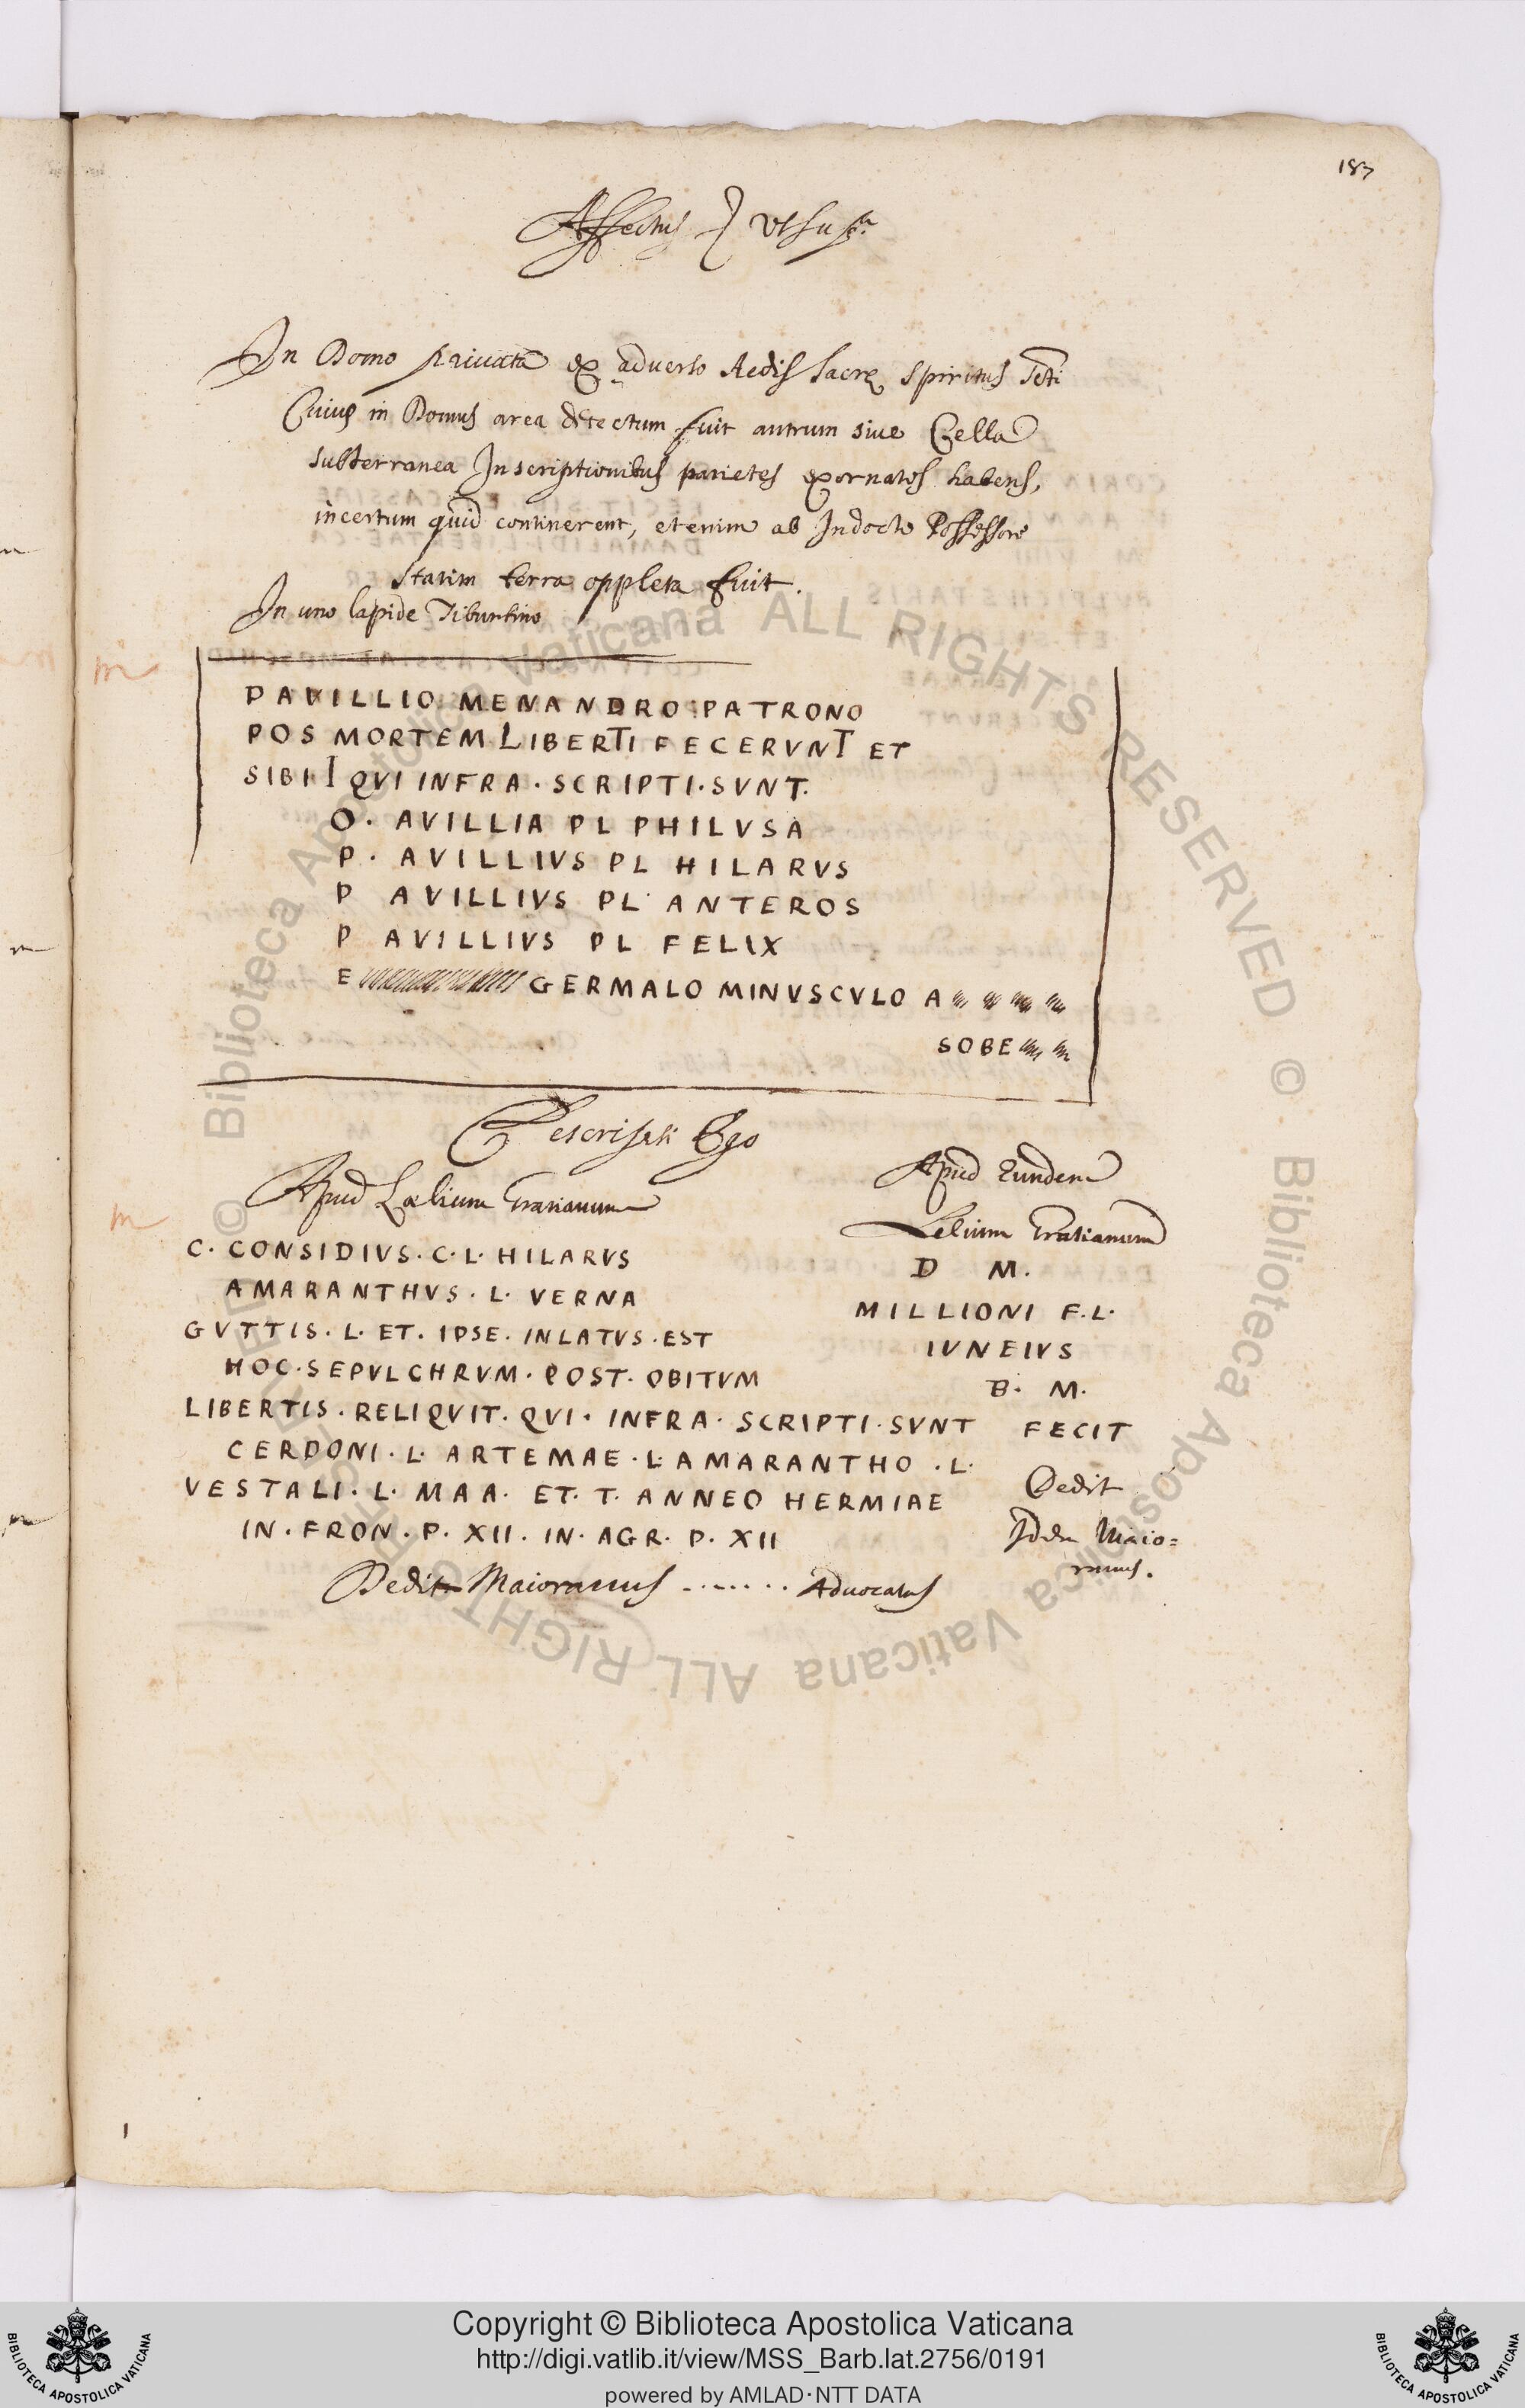 187
Affectus } ut supra.
In Domo privata ex adverso Aedis Sacrę Spiritus Scti
Cuius in Domus area detectum fuit antrum sive Cella
subterranea Inscriptionibus parietes exornatos habens,
incertum quid continerent, etenim ab Indocto Possessore
statim terra oppleta fuit.
In uno lapide Tiburtino
m
PAVILLIO MENANDRO PATRONO
POS MORTEM LIBERTI FECERVNT ET
SIBI I QVI INFRA · SCRIPTI · SVNT.
O · AVILLIA PL PHILVSA
P · AVILLIVS PL HILARVS
P AVILLIVS PL ANTEROS
P AVILLIVS PL FELIX
E GERMALO MINVSCVLO A
SOBE
Descripsi Ego
Apud Lælium Gratianum
m
C. CONSIDIVS. C. L. HILARVS
AMARANTHVS. L. VERNA
GVTTIS. L. ET. IPSE. INLATVS. EST
HOC. SEPVLCHRVM. POST. OBITVM
LIBERTIS. RELIQVIT. QVI. INFRA. SCRIPTI. SVNT
CERDONI. L. ARTEMAE. L. AMARANTHO. L.
VESTALI. L. MAA. ET. T. ANNEO HERMIAE
IN. FRON. P. XII. IN. AGR. P. XII
Dedit Maioranus ....... Advocatus
Apud Eundem
Lelium Gratianum
D M.
MILLIONI F.L.
IVNEIVS
B. M.
FECIT
Dedit
Idem Maio=
ranus.
© Biblioteca Apostolica Vaticana ALL RIGHTS RESERVED © Biblioteca Apostolica Vaticana ALL RIGHTS RESERVED
Copyright © Biblioteca Apostolica Vaticana
http://digi.vatlib.it/view/MSS_Barb.lat.2756/0191
powered by AMLAD·NTT DATA
BIBLIOTECA APOSTOLICA VATICANA
BIBLIOTECA APOSTOLICA VATICANA